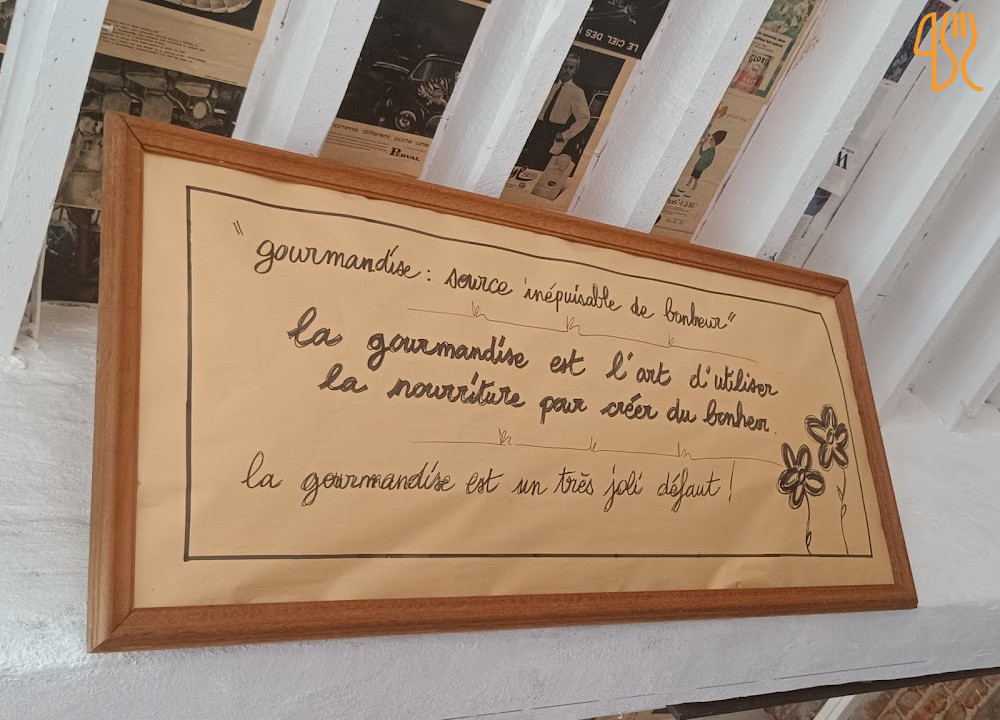 LE CIEL DES
GLORIA
omme différent porte une
PERVAL
os "4 à 16"
W
" gourmandise : source inépuisable de bonheur "
la gourmandise est l'art d'utiliser
la nourriture pour créer du bonheur.
la gourmandise est un très joli défaut !